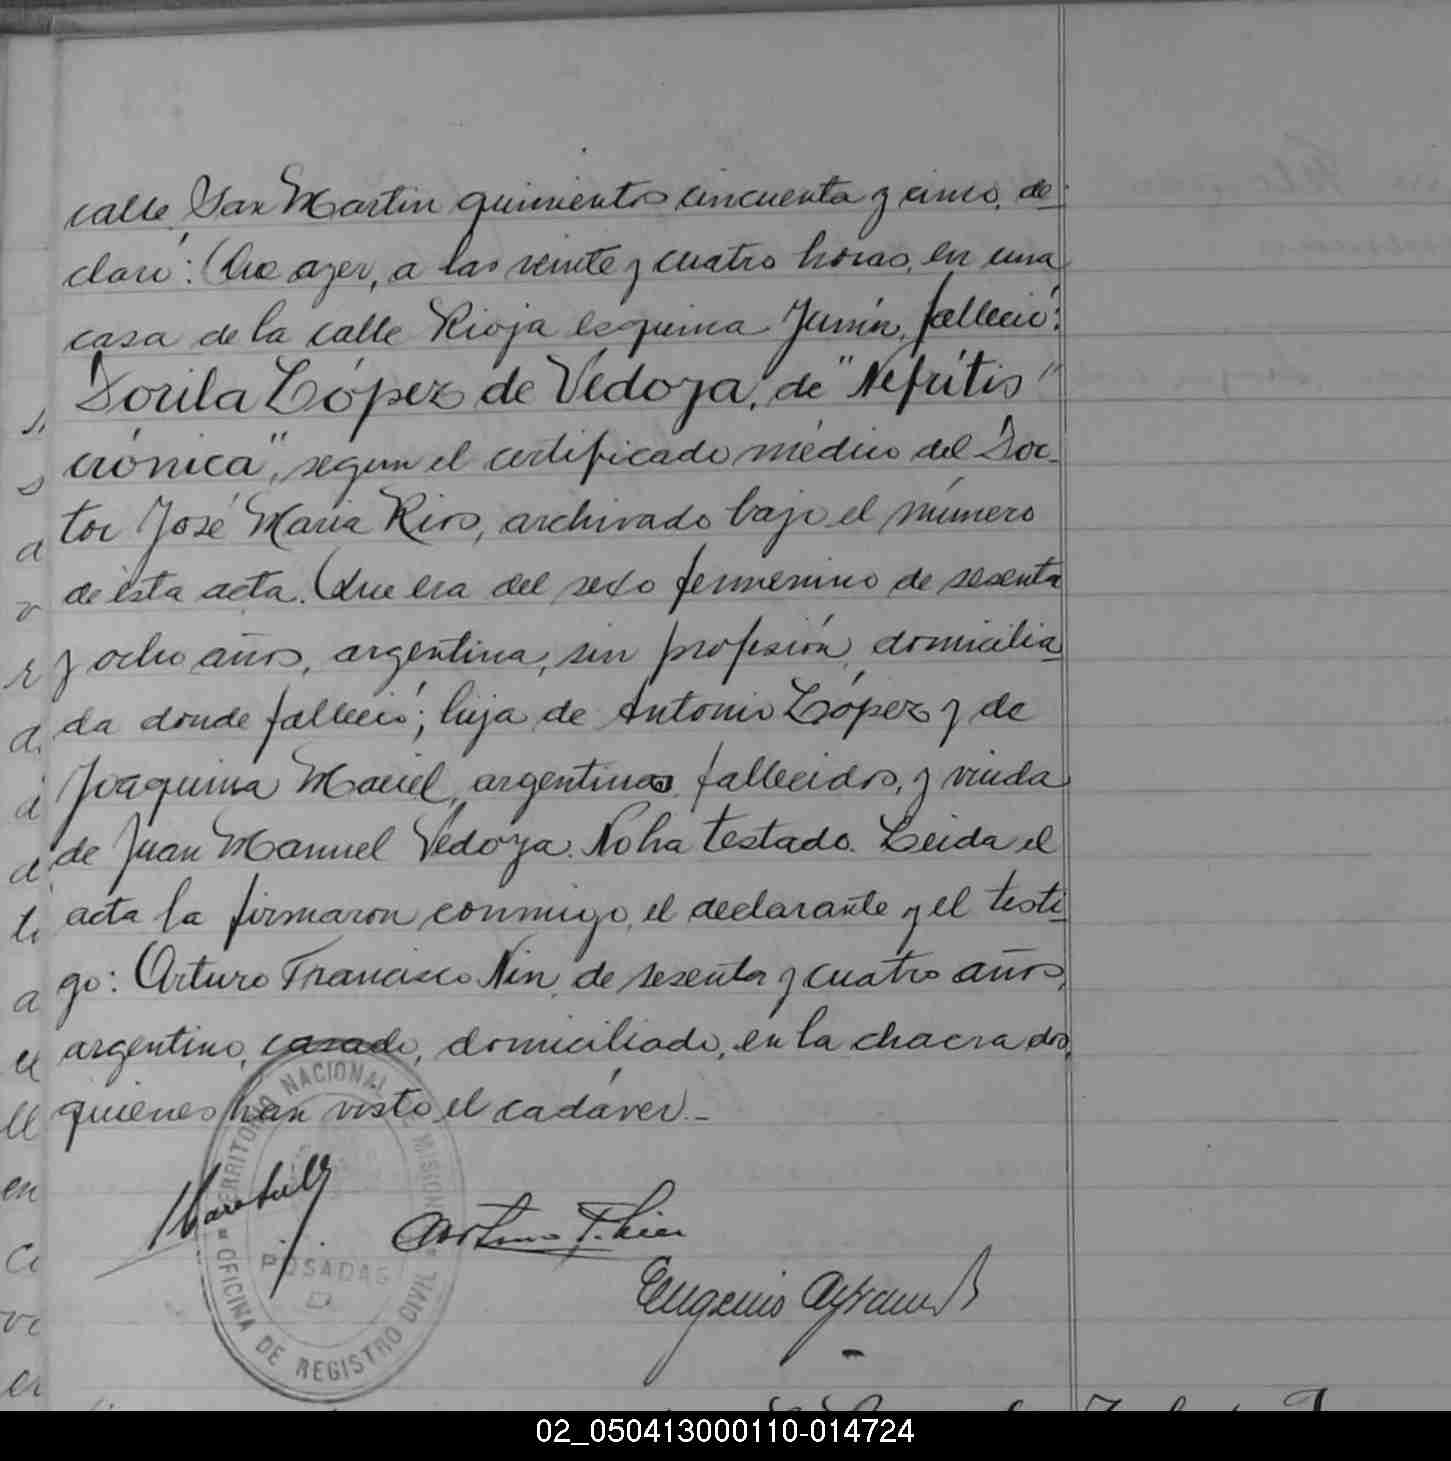 calle San Martin quinientos cincuenta y cinco, de-
claró: Que ayer, a las veinte y cuatro horas, en una
casa de la calle Rioja esquina Junín, falleció:
Dorila López de Vedoya, de "Nefritis
crónica", segun el certificado médico del Doc-
tor José María Rios, archivado bajo el número
de esta acta. Que era del sexo femenino de sesenta
y ocho años, argentina, sin profesión, domicilia-
da donde falleció; hija de Antonio López y de
Joaquina Maciel, argentinos, fallecidos, y viuda
de Juan Manuel Vedoya. No ha testado. Leida el
acta la firmaron conmigo, el declarante y el testi-
go: Arturo Francisco Nin, de sesenta y cuatro años,
argentino, casado, domiciliado, en la chacra dos,
quienes han visto el cadáver.-
TERRITORIO NACIONAL DE MISIONES
POSADAS
OFICINA DE REGISTRO CIVIL
Arturo F. Nin
Eugenio
02_050413000110-014724